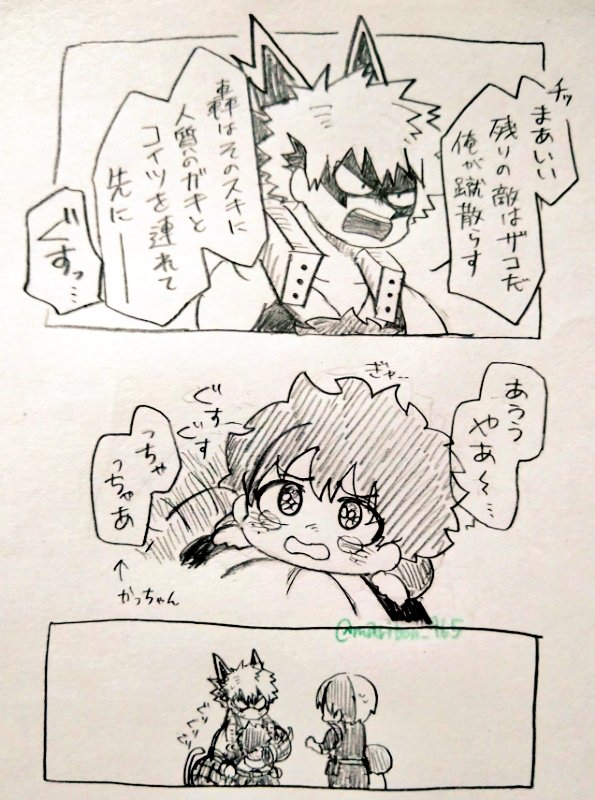 チッ
まあいい
残りの敵はザコだ
俺が蹴散らす
轟はそのスキに
人質のガキと
コイツを連れて
先に――
ぐすっ…
ぎゃ…
あうう
やあ〜…
ぐす
ぐす
っちゃ
っちゃあ
↑
かっちゃん